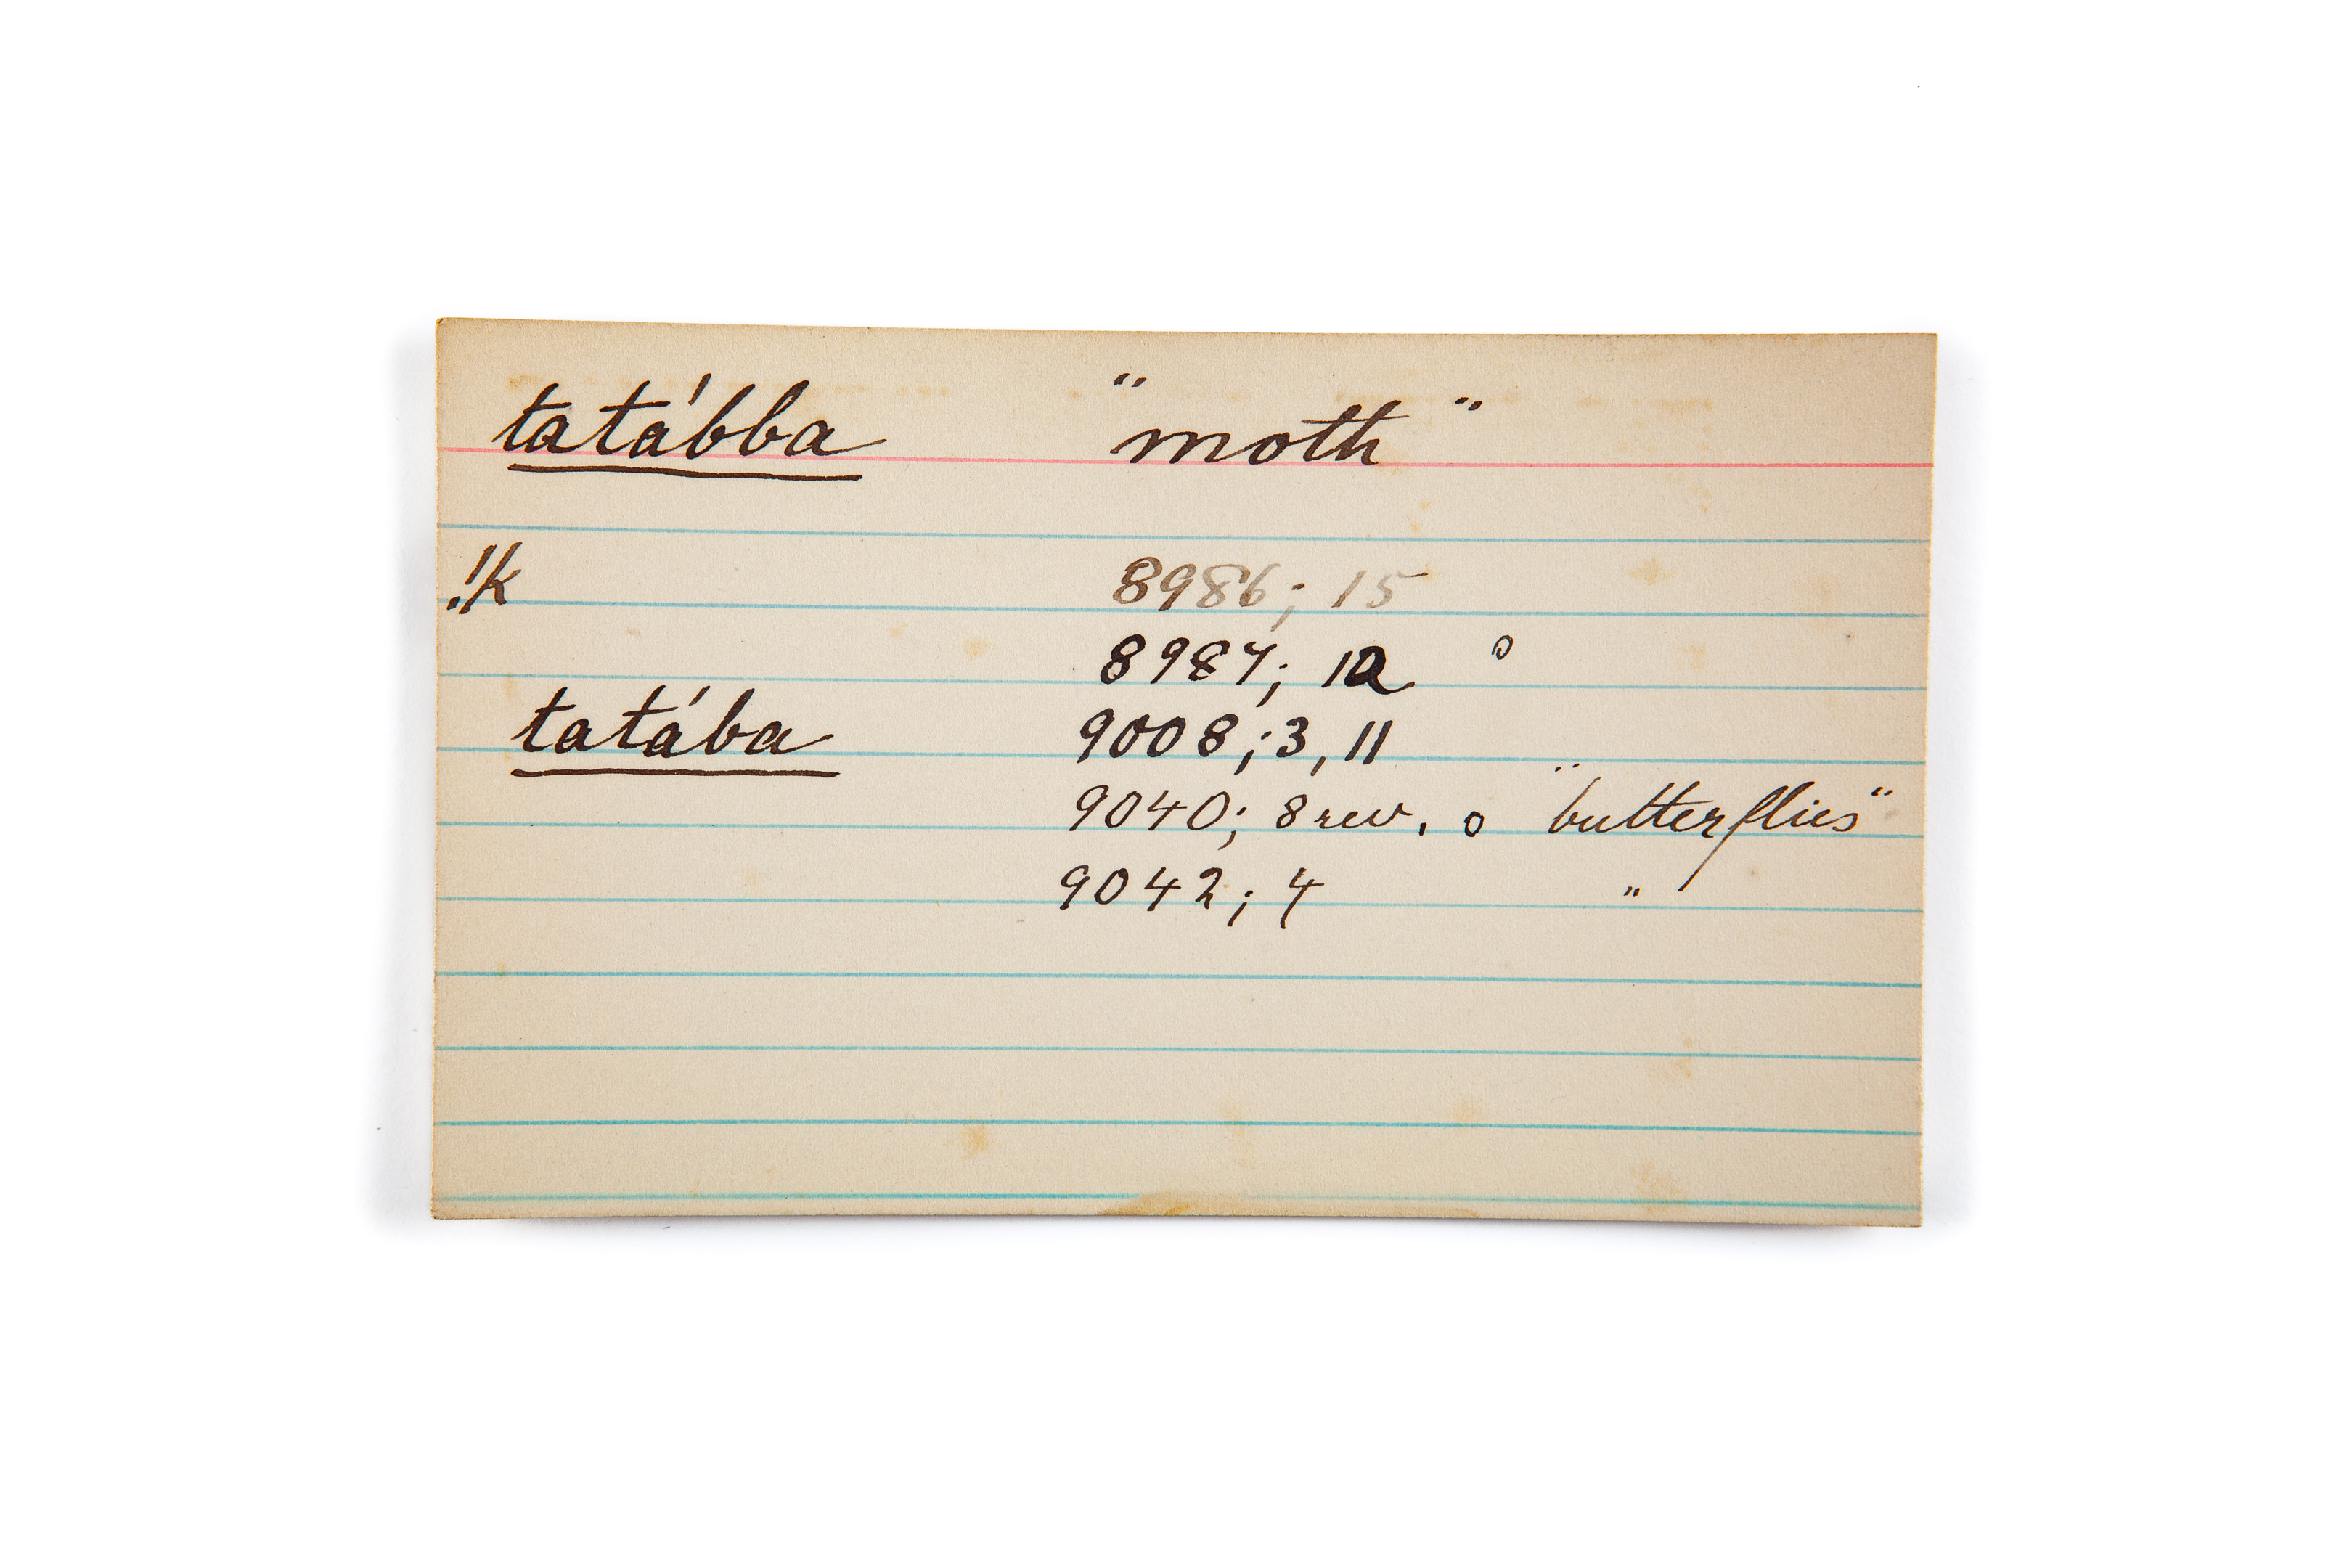 tatábba "moth"
!k 8986; 15
8987; 12 o
tatába 9008; 3, 11
9040; 8 rev. o "butterflies"
9042; 4 "